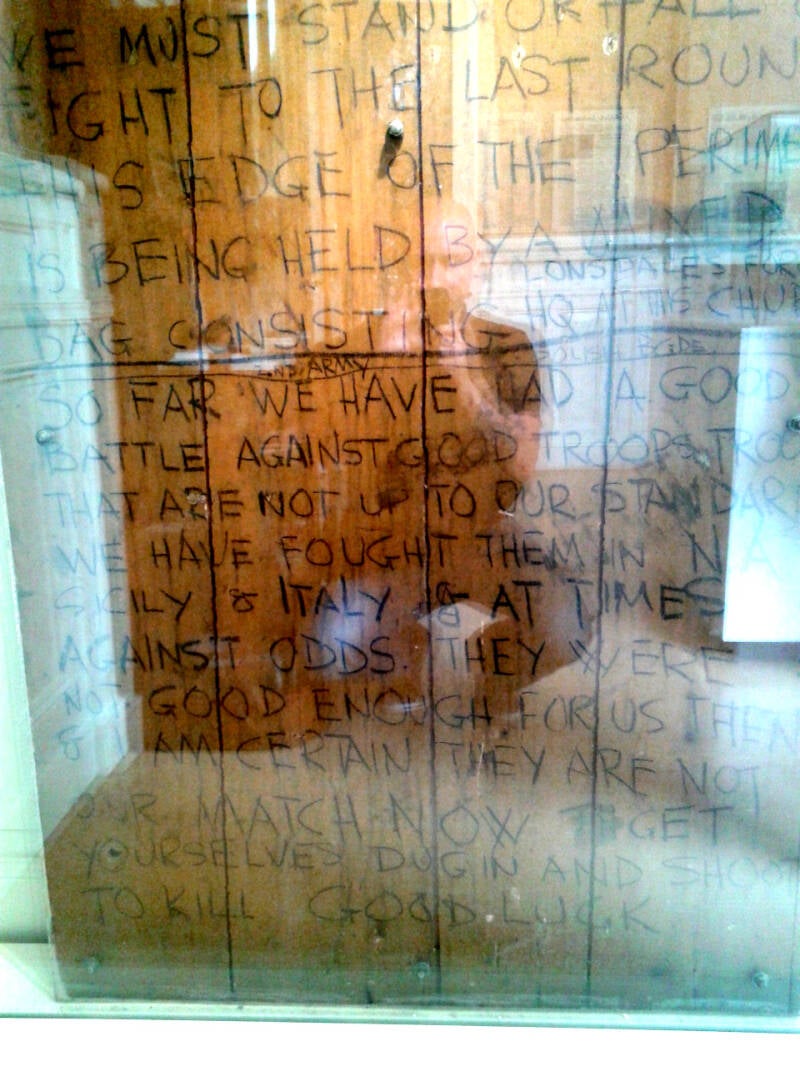 WE MUST STAND OR FALL
FIGHT TO THE LAST ROUN
THIS EDGE OF THE PERIME
IS BEING HELD BY A MIXED
LONSDALES FOR
BAG CONSISTING HQ AT THIS CHU
POLISH BGDE
2ND ARMY
SO FAR WE HAVE HAD A GOOD
BATTLE AGAINST GOOD TROOPS TROO
THAT ARE NOT UP TO OUR STANDAR
WE HAVE FOUGHT THEM IN N A
SICILY & ITALY & AT TIMES
AGAINST ODDS. THEY WERE
NOT GOOD ENOUGH FOR US THEN
& I AM CERTAIN THEY ARE NOT
OUR MATCH NOW GET
YOURSELVES DUG IN AND SHOOT
TO KILL GOOD LUCK